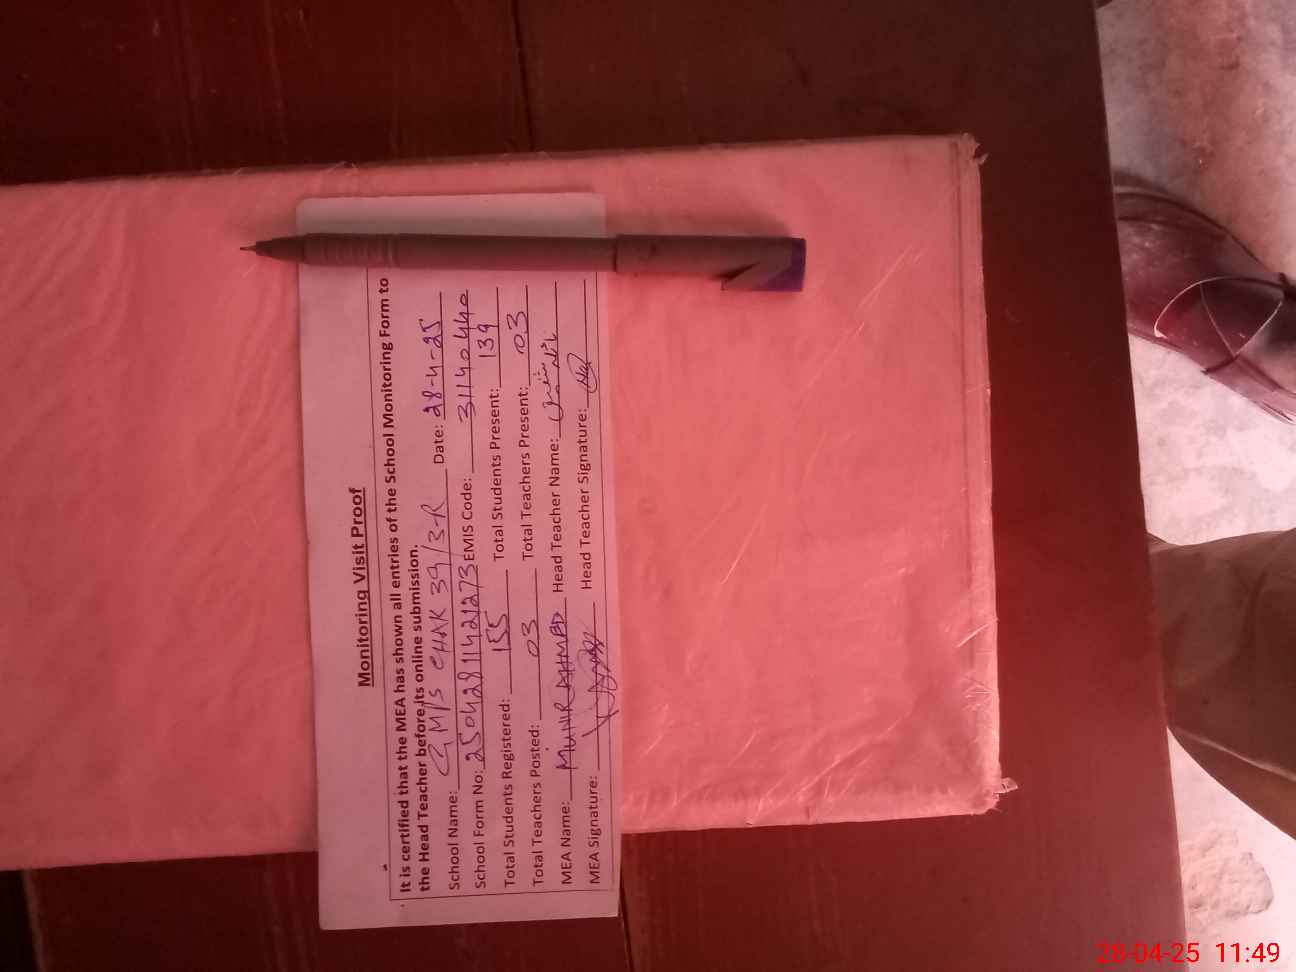 Monitoring Visit Proof
It is certified that the MEA has shown all entries of the School Monitoring Form to
the Head Teacher before its online submission.
School Name: GMPS CHAK 39/3-R Date: 28-4-25
School Form No: 25042811421273 EMIS Code: 31140440
Total Students Registered: 155 Total Students Present: 139
Total Teachers Posted: 03 Total Teachers Present: 03
MEA Name: MUNIR AHMED Head Teacher Name:
MEA Signature: Head Teacher Signature:
28-04-25 11:49